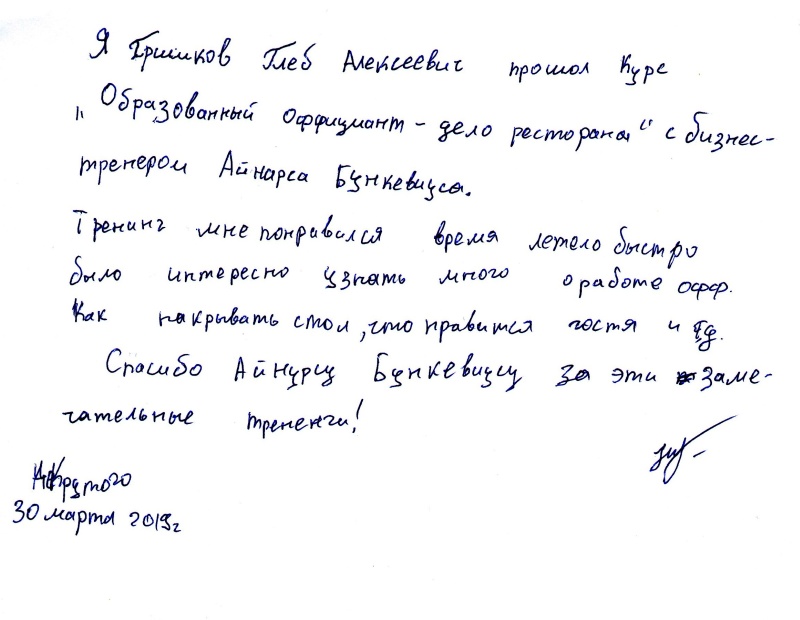 Я Гришков Глеб Алексеевич прошол Курс
"Образованный оффициант - дело ресторана" с бизнес-
тренером Айнарса Бункевиуса.
Тренинг мне понравился время летело быстро
было интересно узнать много о работе офф.
Как накрывать стол, что нравится гостя и тд.
Спасибо Айнурсу Бункевиусу за эти заме-
чательные трененги!
30 марта 2019г